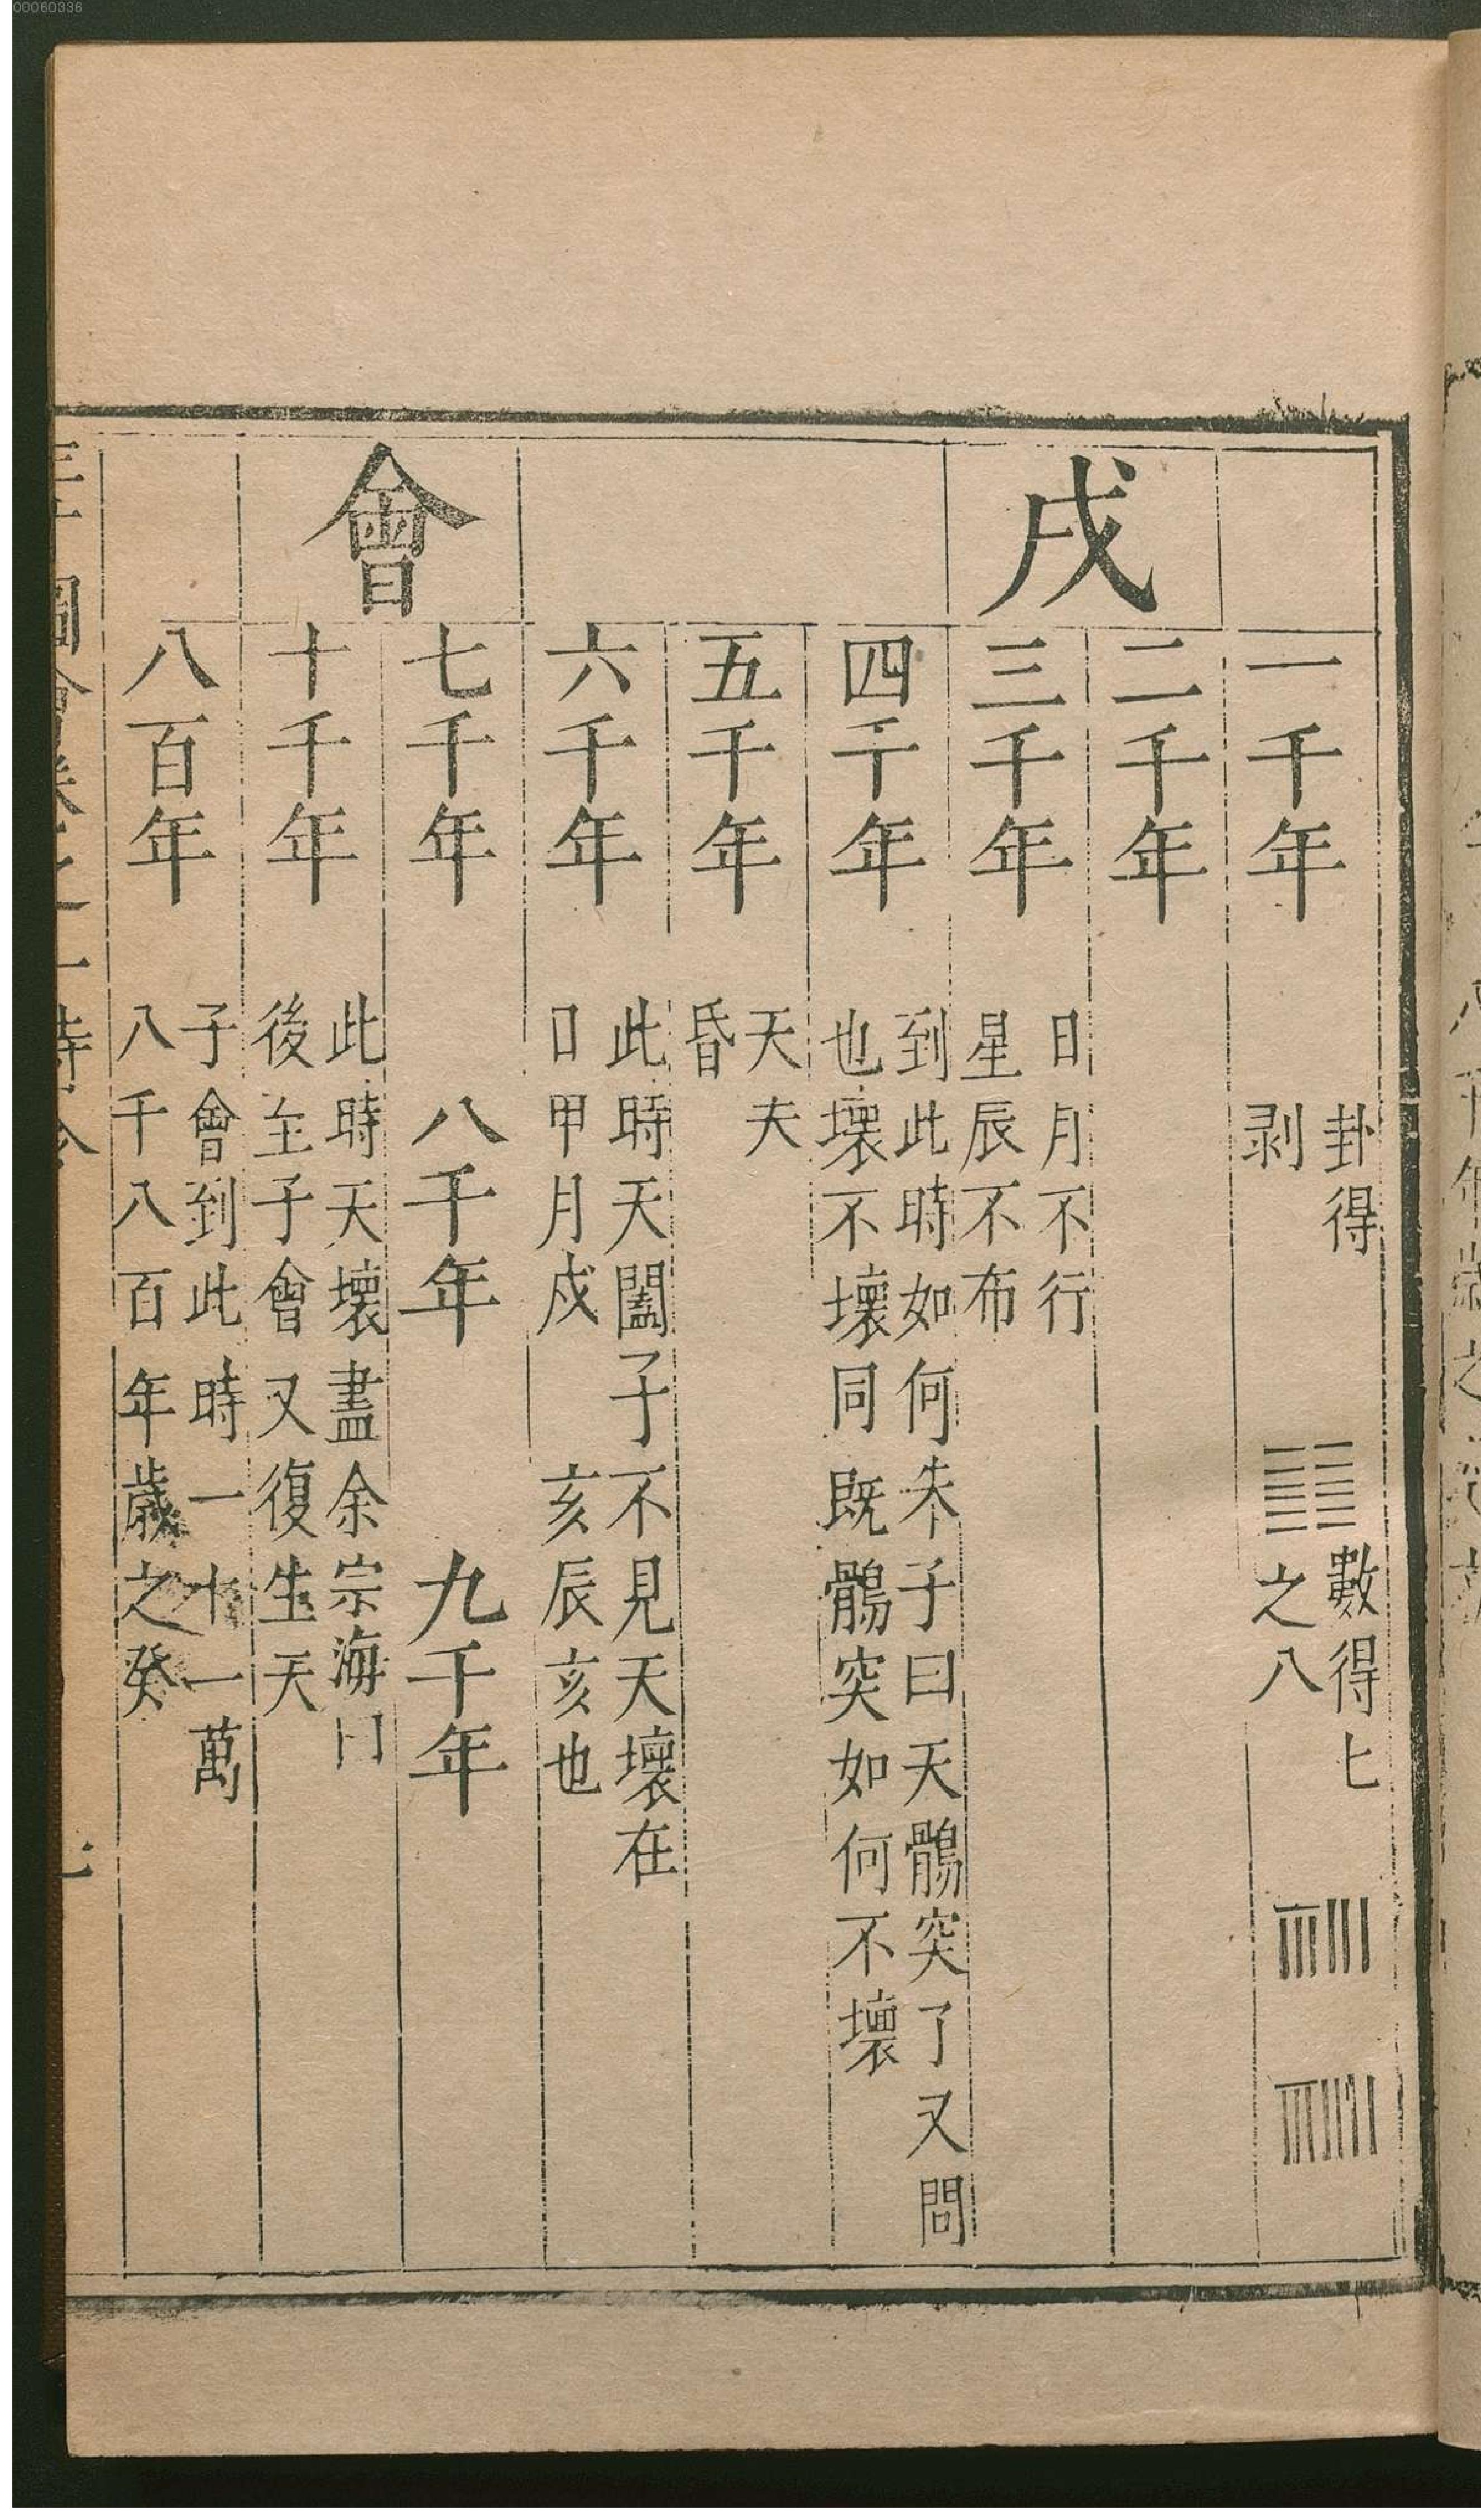 00060336
戌
會
一千年
卦得
剥
數得七
之八
二千年
三千年
日月不行
星辰不布
四千年
到此時如何朱子曰天鶻突了又問
也壞不壞同既鶻突如何不壞
五千年
天夫
昏
六千年
此時天闔子不見天壞在
日甲月戌 亥辰亥也
七千年 八千年 九千年
十千年
此時天壞盡余宗海曰
後至子會又復生天
八百年
子會到此時一十一萬
八千八百年歲之癸
三才圖會卷之一時令 七